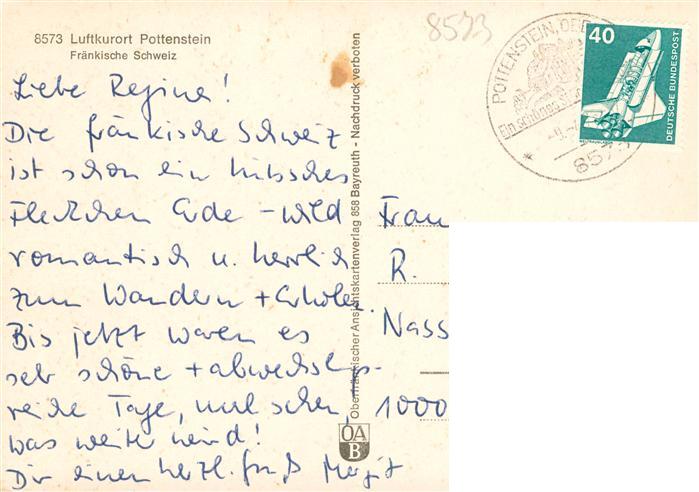 8573 Luftkurort Pottenstein
Fränkische Schweiz
8573
POTTENSTEIN, OB
Ein schönes
8573
40
DEUTSCHE BUNDESPOST
Liebe Regine!
Die fränkische Schweiz
ist schon ein hübsches
Fleckchen Erde - wild
romantisch u. herrlich
zum Wandern + Erholen.
Bis jetzt waren es
sehr schöne + abwechslungs-
reiche Tage, mal sehen,
was weiter wird!
Dir einen herzl. Gruß Margit
Oberfränkischer Ansichtskartenverlag 858 Bayreuth - Nachdruck verboten
OA
B
Frau
R.
Nass
1000